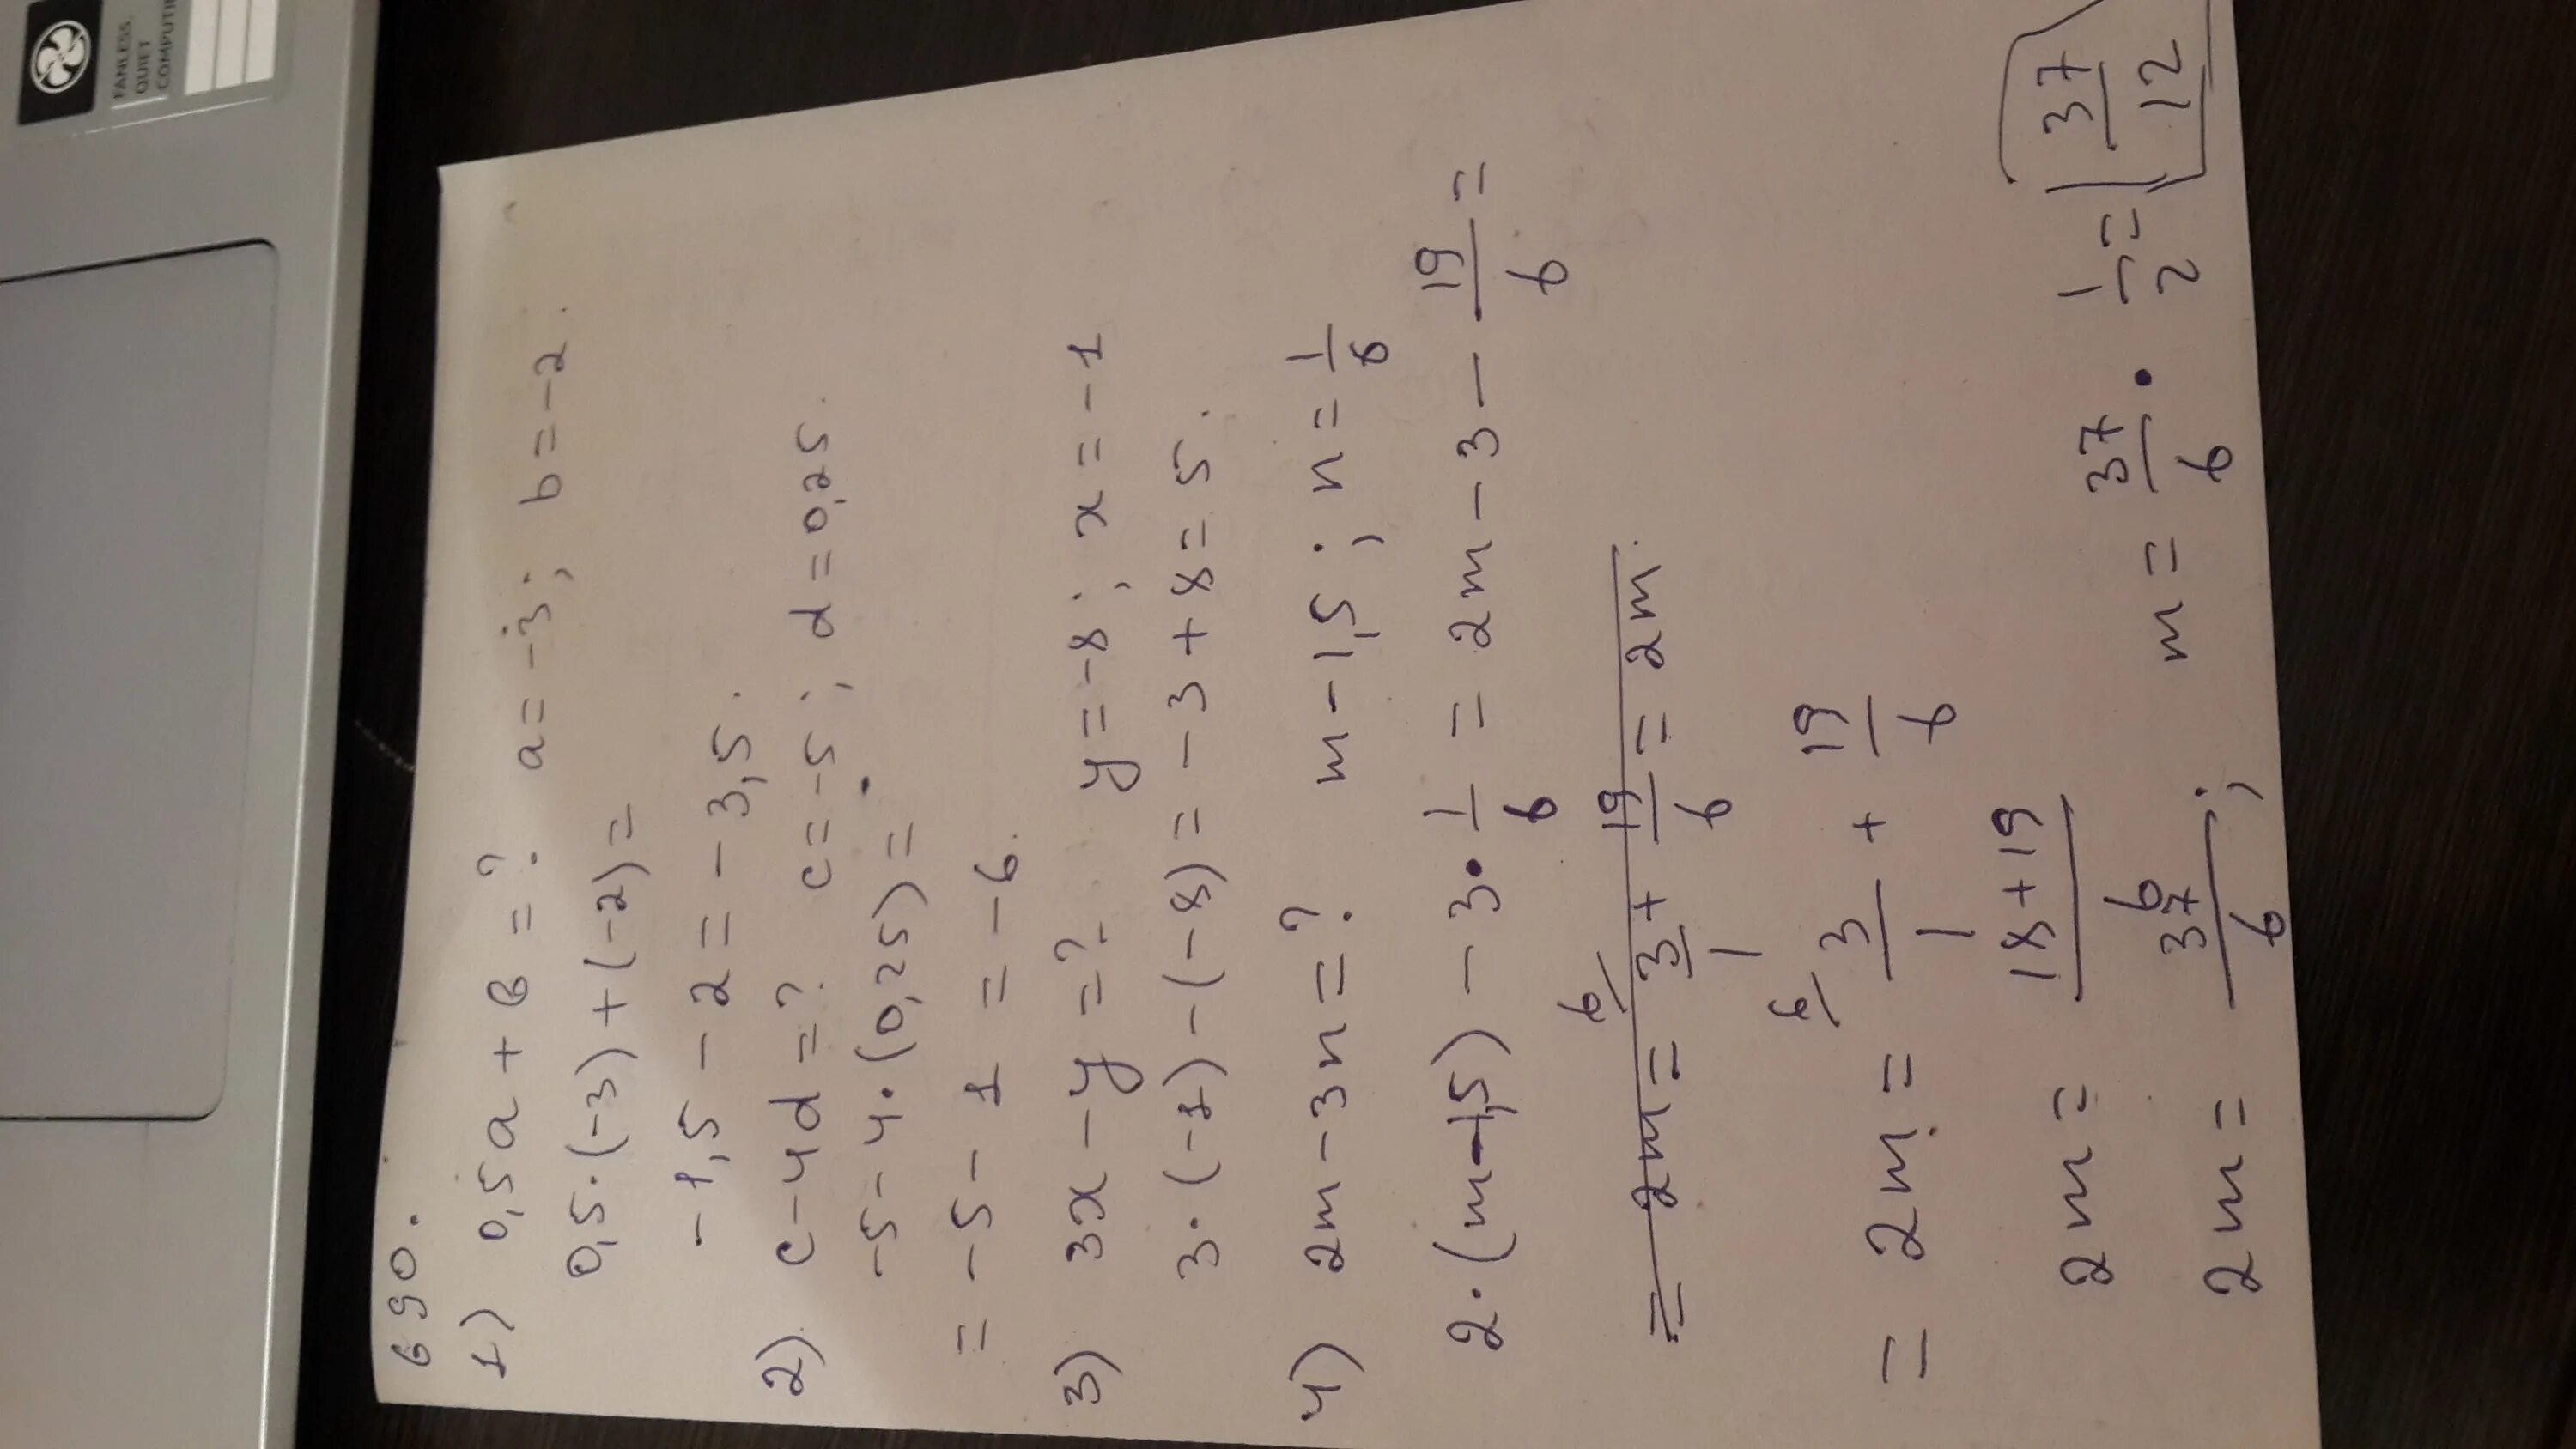 FANLESS.
QUIET
COMPUTI
690.
1) 0,5a + в = ? a = -3; b = -2.
0,5·(-3) + (-2) =
-1,5 - 2 = -3,5.
2) c - 4d = ? c = -5; d = 0,25.
-5 - 4·(0,25) =
= -5 - 1 = -6.
3) 3x - y = ? y = -8; x = -1
3·(-1) - (-8) = -3 + 8 = 5.
4) 2m - 3n = ? m - 1,5; n = 1/6
2·(m-1,5) - 3·1/6 = 2m - 3 - 19/6 =
= 2m = 6/ 3/1 + 19/6 = 2m.
= 2m = 6/ 3/1 + 19/6
2m = 18+19/6
2m = 37/6; m = 37/6 · 1/2 = 37/12